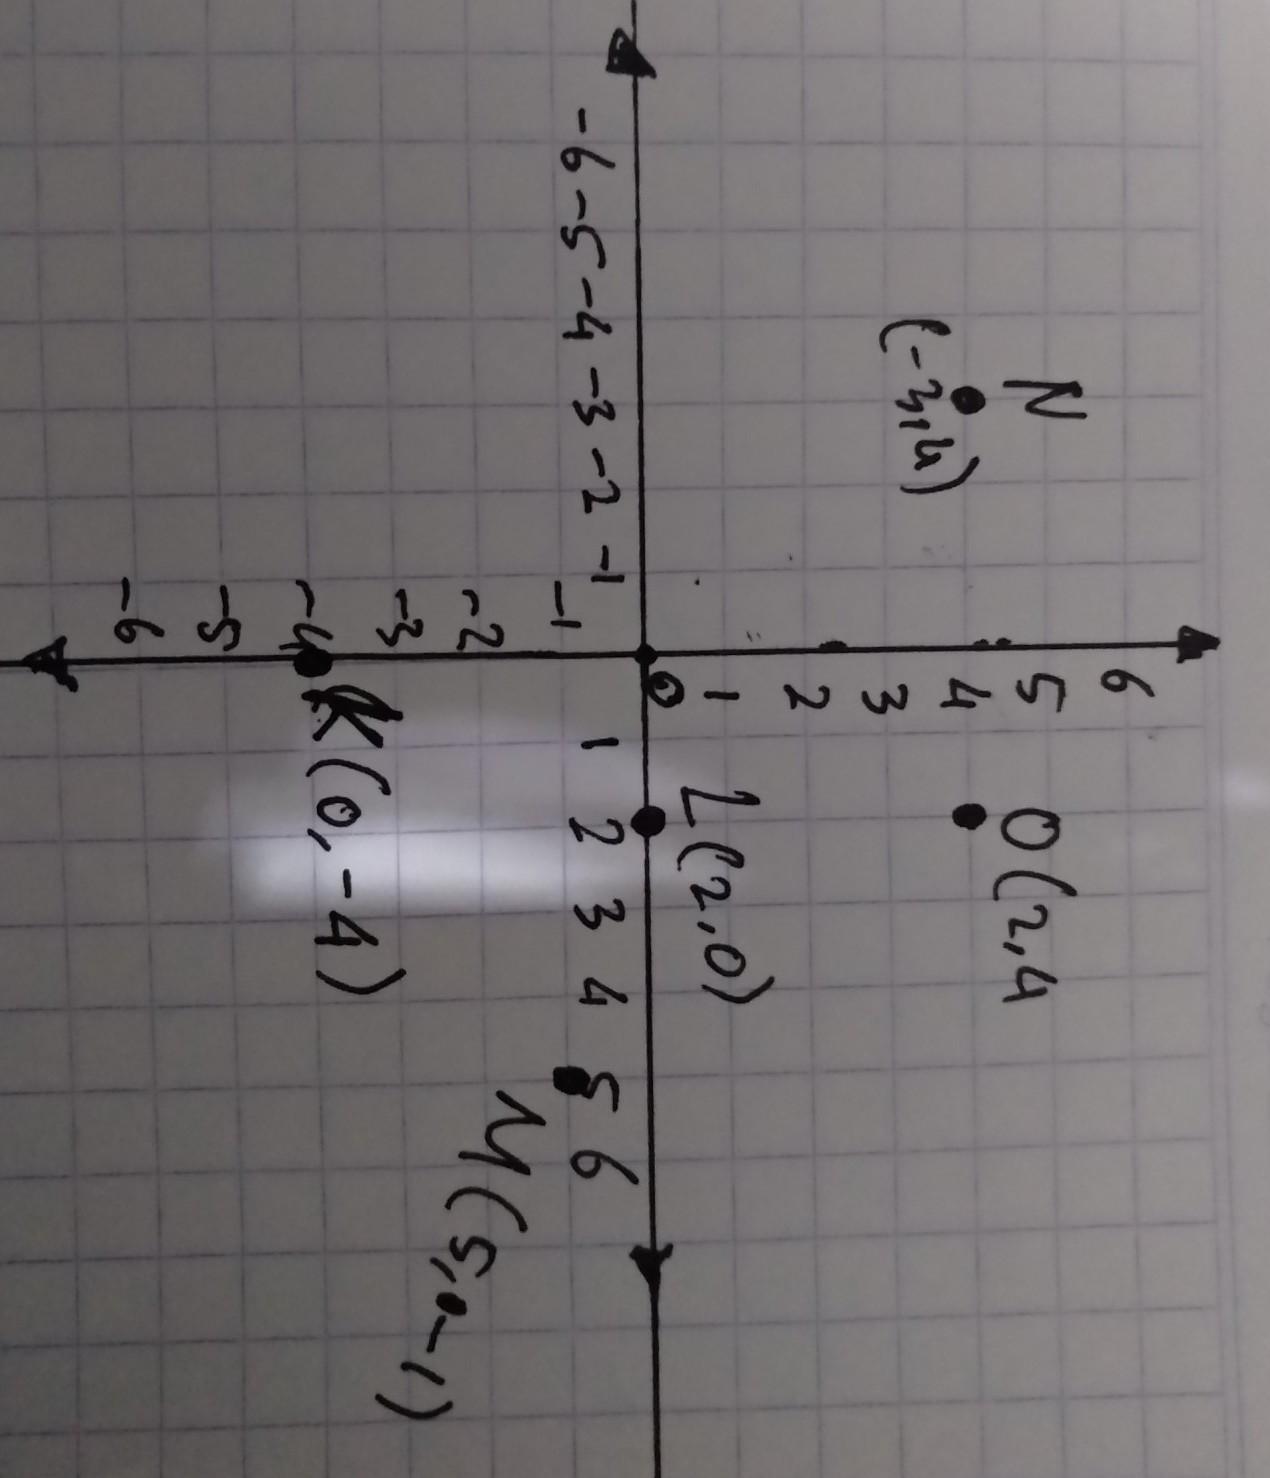 6
N
5
O(2,4
4
(-3,4)
3
2
1
L(2,0)
0
-6 -5 -4 -3 -2 -1 1 2 3 4 5 6
-1
M(5,-1)
-2
-3
-4
K(0,-4)
-5
-6